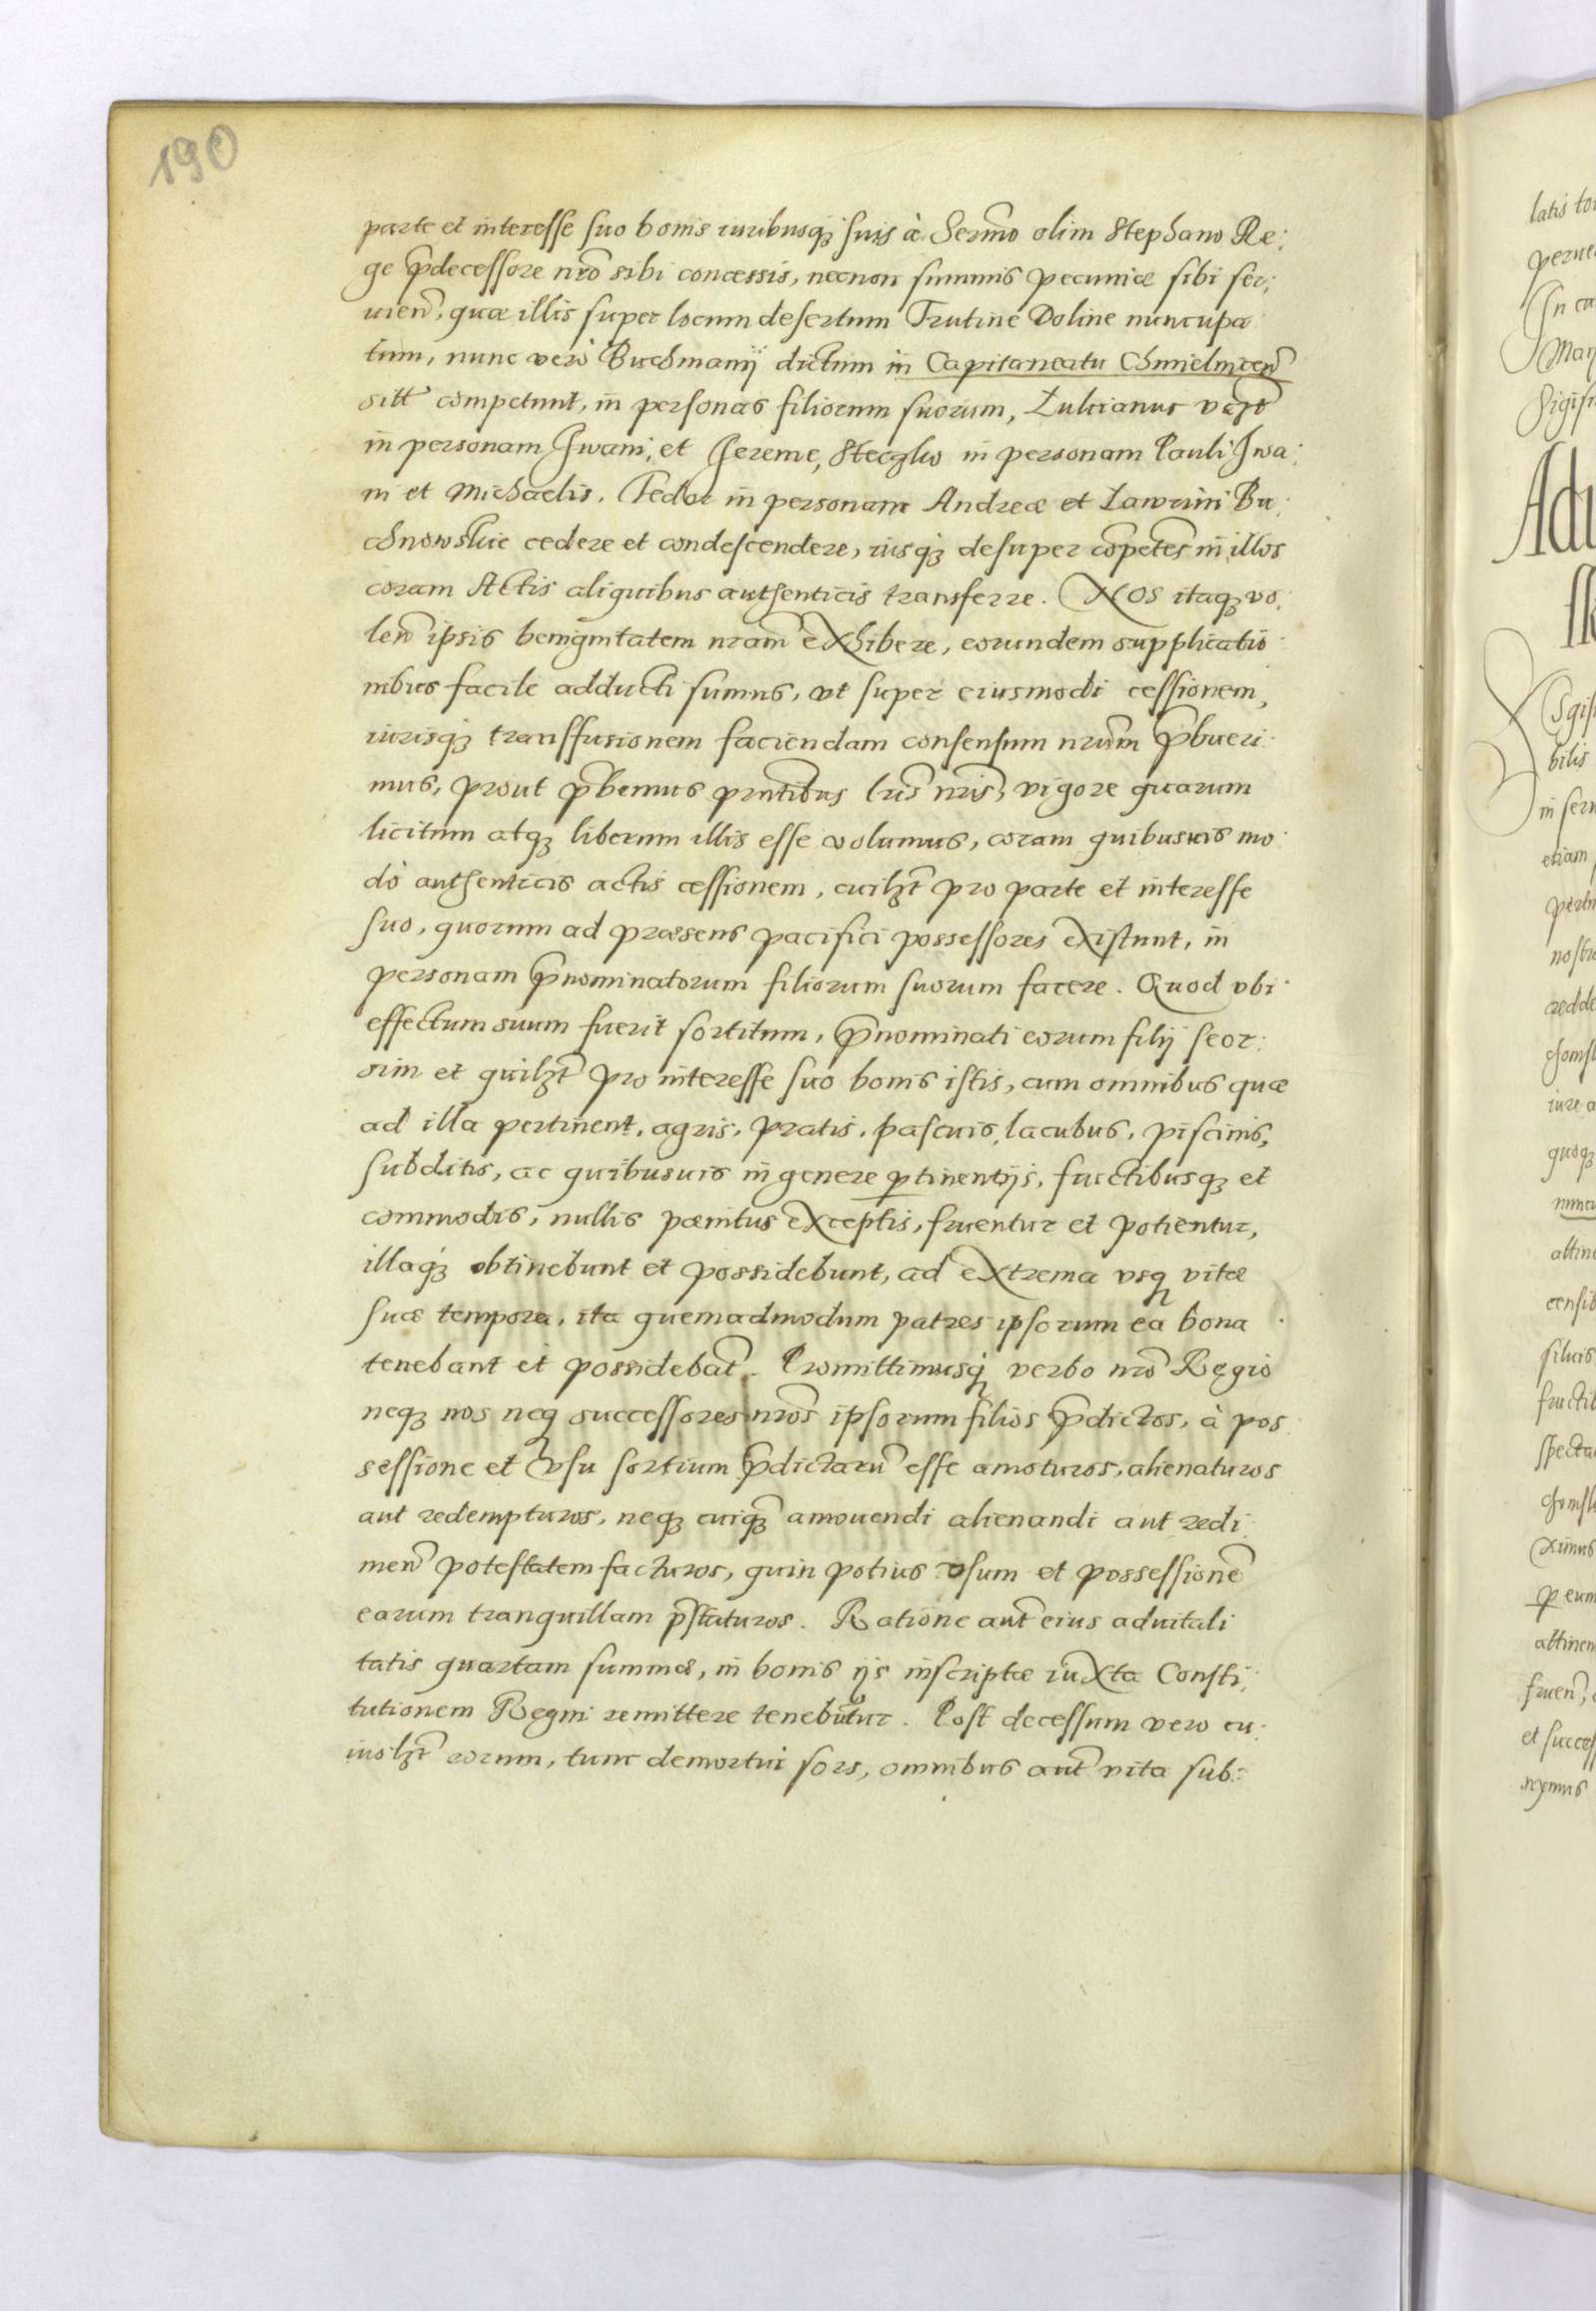 190
parte et interesse suo bonis iuribusq; suis à Sermo olim Stephano Re:
ge pdecessore nro sibi concessis, necnon summis pecuniæ sibi ser:
uien, quæ illis super locum desertum Trutine Doline nuncupa
tum, nunc verò Buchmanÿ dictum in Capitaneatu Chmielnicen
sitt competunt, in personas filiorum suorum, Lukianus vero
in personam Iwani, et Ieremę, Steczko in personam Pauli Iwa:
ni et Michaelis. Fedor in personam Andreæ et Lawrini Bu:
chnowskie cedere et condescendere, iusq; desuper competes in illos
coram Actis aliquibus authenticis transferre. NOS itaq; vo:
len ipsis benignitatem nram exhibere, eorundem supplicatio
nibus facile adducti sumus, vt super eiusmodi cessionem,
iurisq; transfusionem faciendam consensum nrum pbueri:
mus, prout pbemus pntibus lris nris, vigore quarum
licitum atq; liberum illis esse volumus, coram quibusuis mo
dò authenticis actis cessionem, cuilzt pro parte et interesse
suo, quorum ad præsens pacifici possessores existunt, in
personam pnominatorum filiorum suorum facere. Quod vbi
effectum suum fuerit sortitum, pnominati eorum filij seor:
sim et quilzt pro interesse suo bonis istis, cum omnibus quæ
ad illa pertinent, agris, pratis, pascuis, lacubus, piscinis,
subditis, ac quibusuis in genere ptinentijs, fructibusq; et
commodis, nullis pœnitus exceptis, fruentur et potientur,
illaq; obtinebunt et possidebunt, ad extrema vsq vitæ
suæ tempora, ita quemadmodum patres ipsorum ea bona
tenebant et possidebat. Promittimusq; verbo nro Regio
neq; nos neq successores nros ipsorum filios pdictos, à pos
sessione et vsu sortium pdictaru esse amoturos, alienaturos
aut redempturos, neq; cuiq; amouendi alienandi aut redi:
men potestatem facturos, quin potius vsum et possessione
earum tranquillam pstaturos. Ratione aut eius aduitali
tatis quartam summæ, in bonis ijs inscriptæ iuxta Consti:
tutionem Regni remittere tenebutur. Post decessum vero cu:
iuslzt eorum, tunc demortui sors, omnibus aut vita sub: